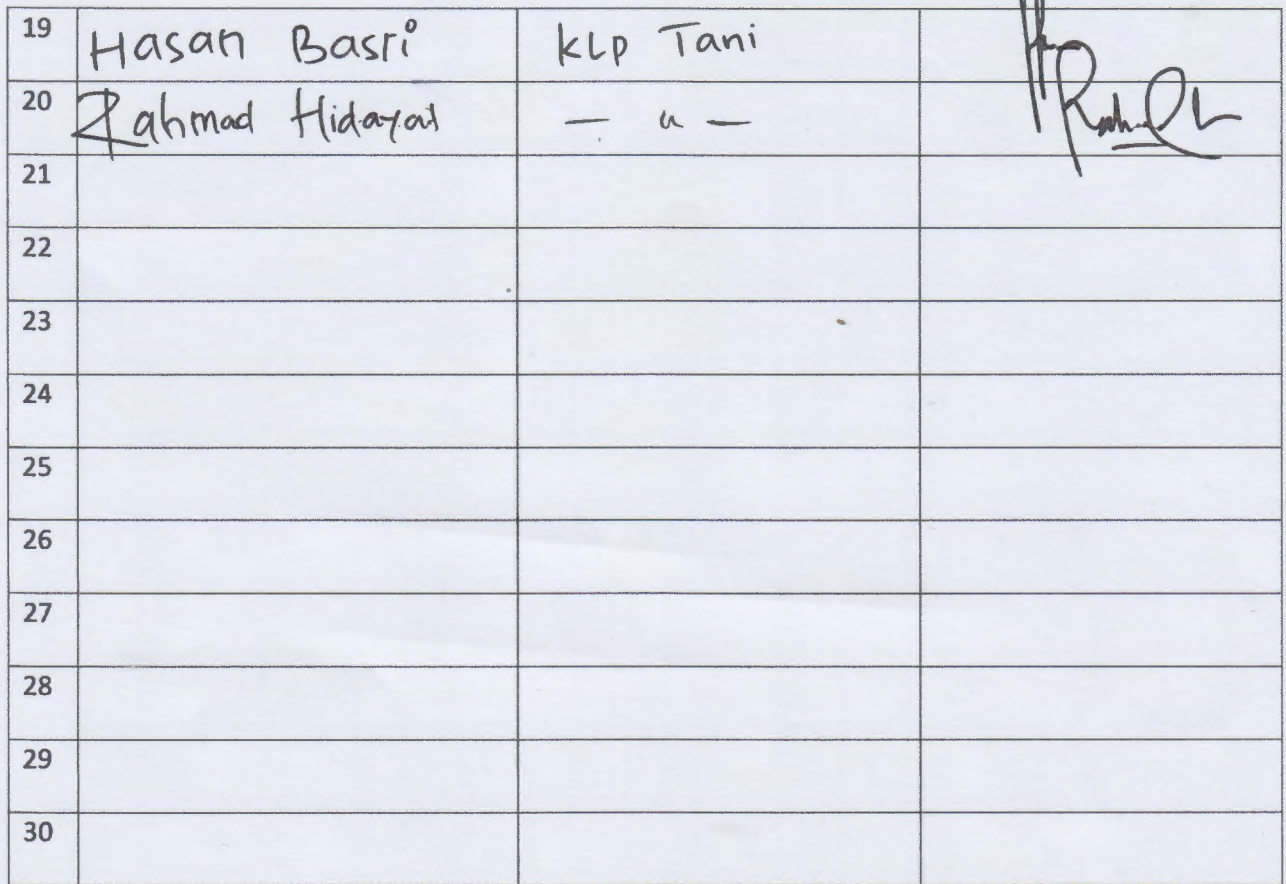 19 Hasan Basri KLP Tani
20 Rahmad Hidayat — u —
21
22
23
24
25
26
27
28
29
30